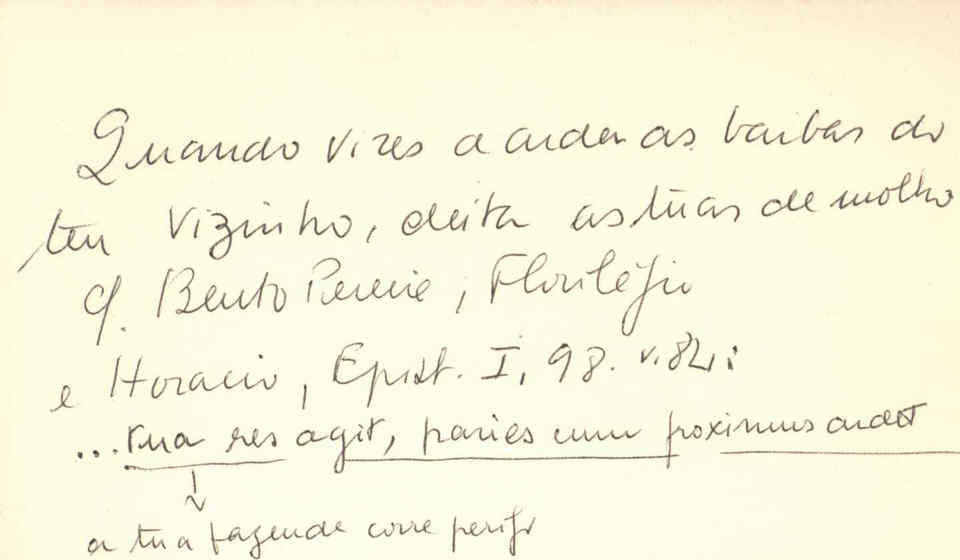 Quando vires a arder as barbas do
teu vizinho, deita as tuas de molho
cf. Bento Pereira, Florilégio
e Horacio, Epist. I, 98. v. 84:
...tua res agit, paries cum proximus ardet
a tua fazenda corre perigo